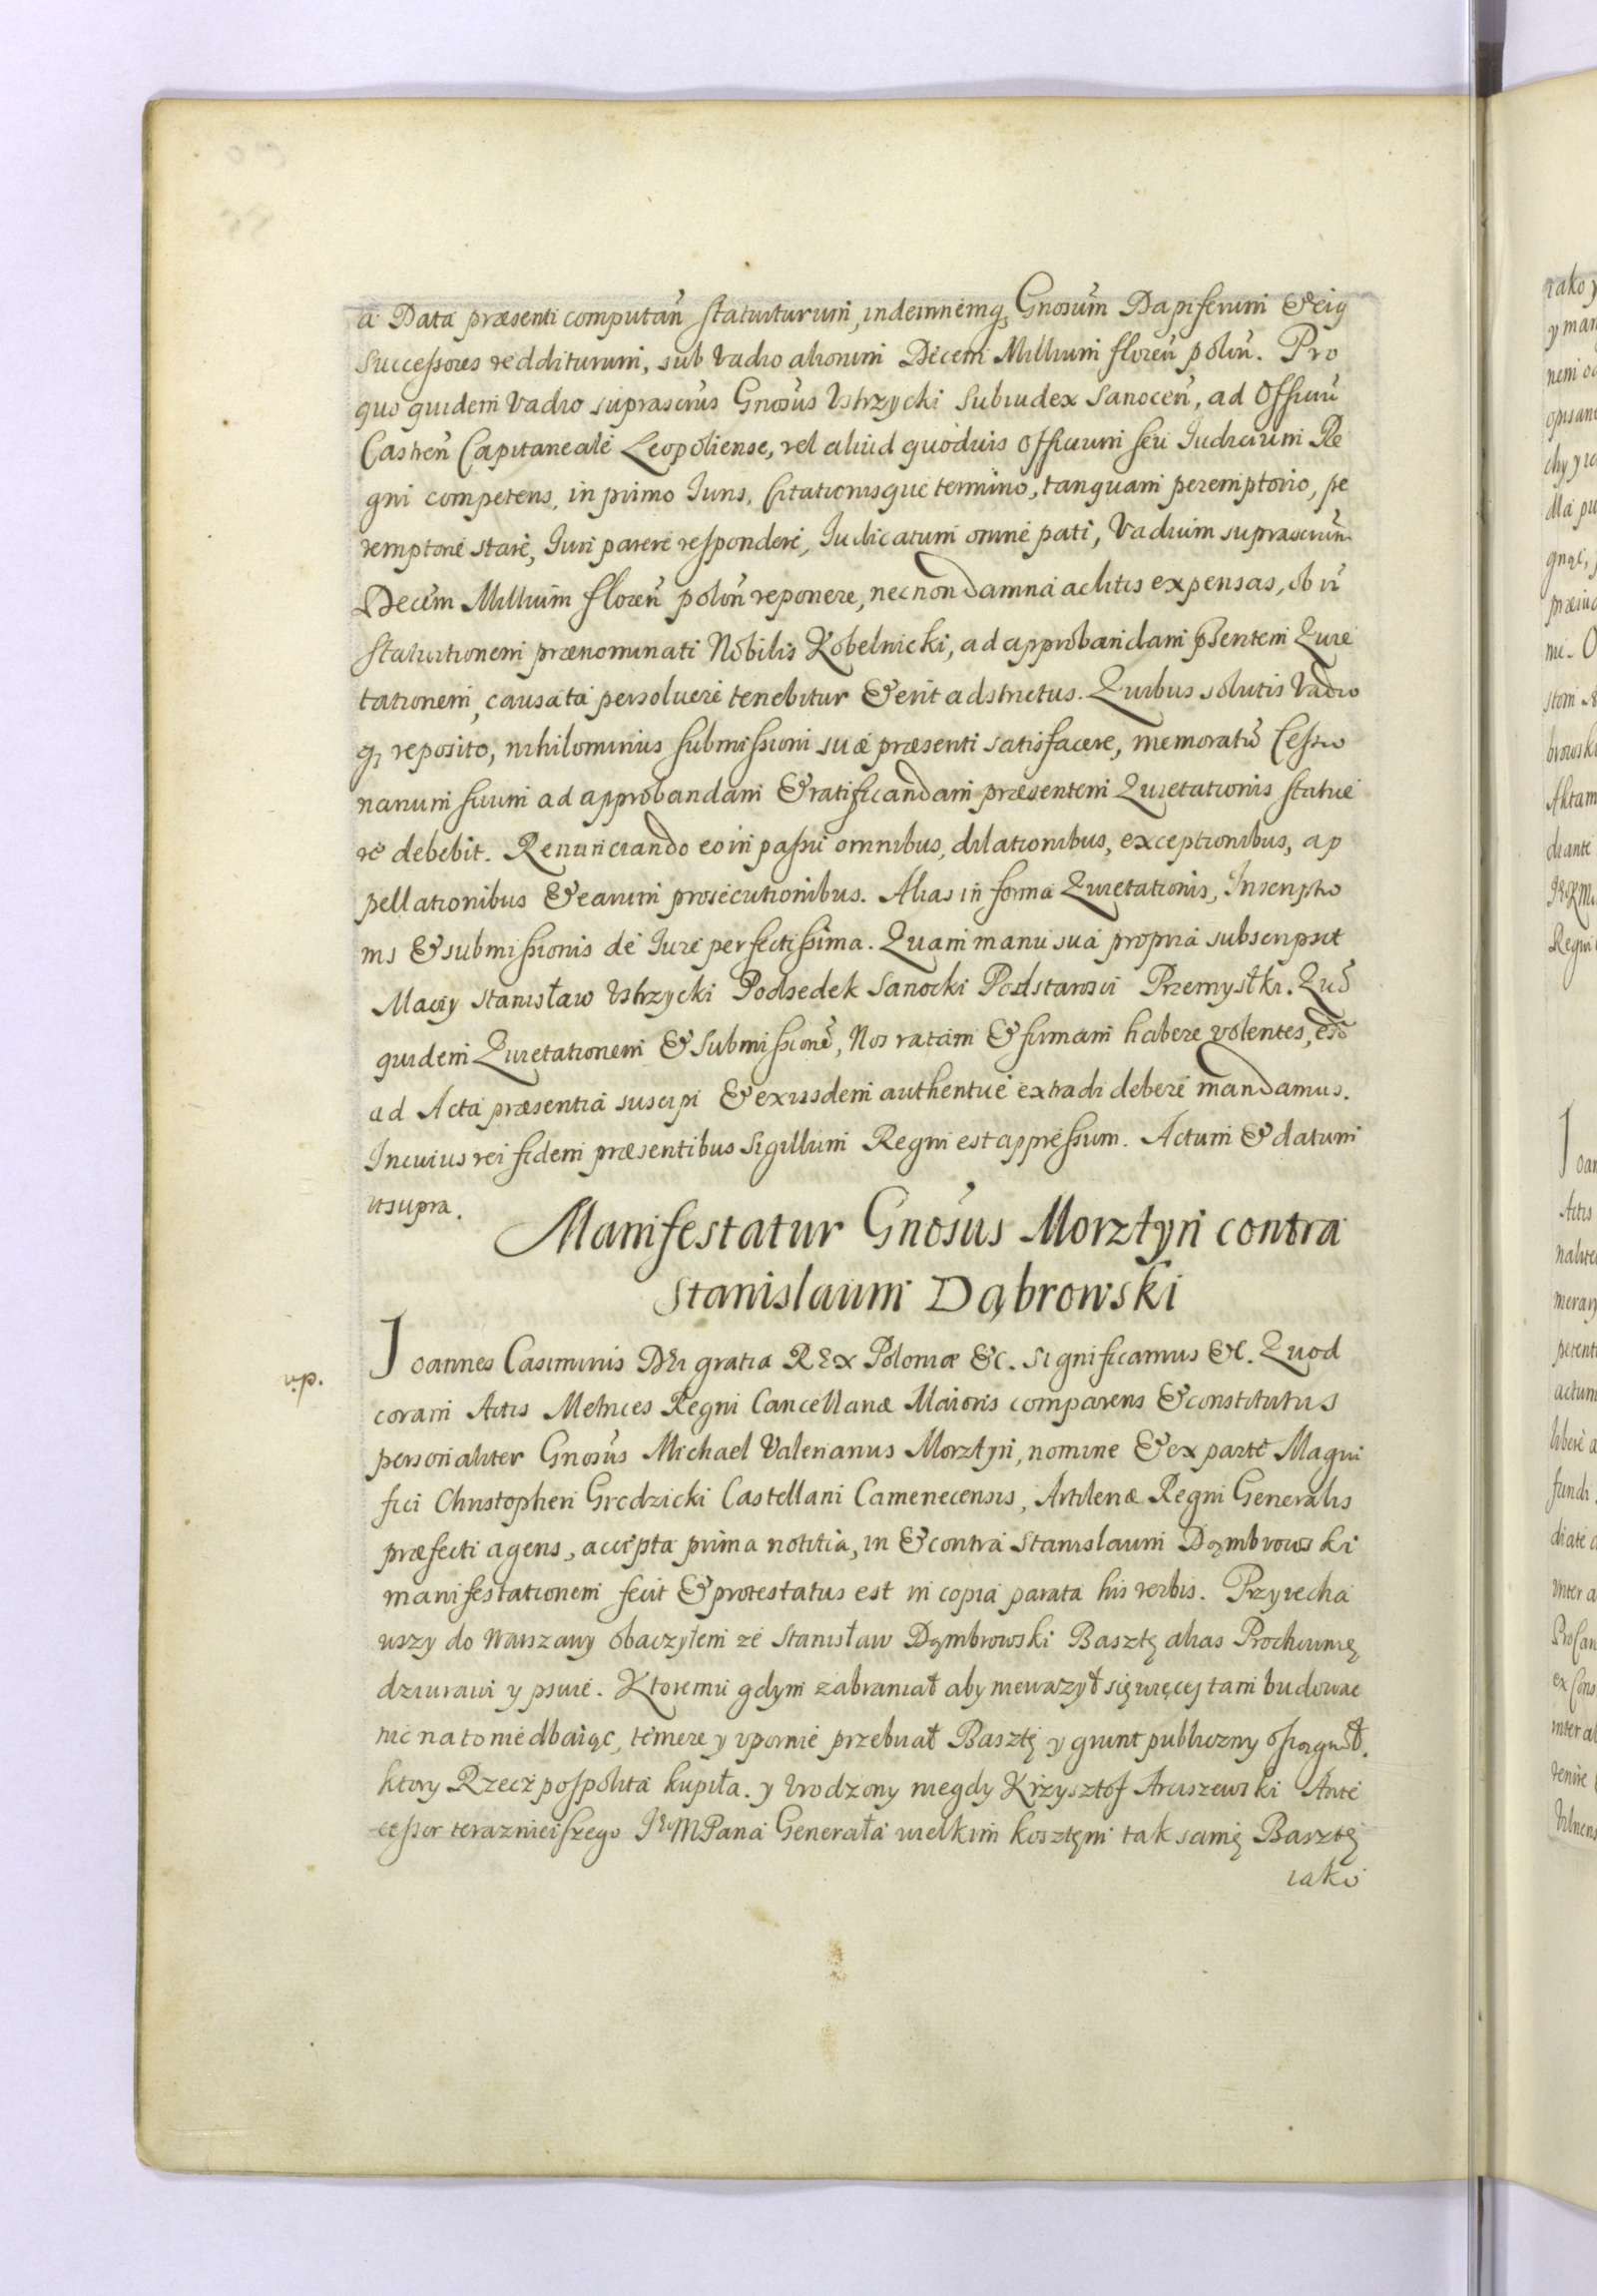 a Data præsenti computañ statuiturum, indemnemq; Gnosum̃ Dapiferum & eiꝰ
Successores redditurum, sub Vadio aliorum Decem Millium floreñ poloñ. Pro
quo quidem Vadio suprascrũs Gnosus Ustrzycki Subiudex Sanoceñ, ad Officiũ
Castreñ Capitaneale Leopoliense, vel aliud quoduis Officium seu Iudicium Re
gni competens, in primo Iuris, Citationisque termino, tanquam peremptorio, pe
remptorie stare, Iuri parere respondere, Iudicatum omne pati, Vadium suprascrũm
Decem Millium floreñ poloñ reponere, necnon damna aclitis expensas, ob ñ
statuitionem prænominati Nobilis Kobelnicki, ad approbandam p̃sentem Quie
tationem, causata persoluere tenebitur & erit adstrictus. Quibus solutis Vadio
q; reposito, nihilominus submissioni suæ præsenti satisfacere, memoratũ Cessio
narium suum ad approbandam & ratificandam præsentem Quietationis statue
re debebit. Renunciando eo in passu omnibus, dilationibus, exceptionibus, ap
pellationibus & earum prosecutionibus. Alias in forma Quietationis, Inscriptio
nis & submissionis de Iure perfectissima. Quam manu sua propria subscripsit
Maciy Stanisław Ustrzycki Podsedek Sanocki Podstarosci Przemyslki. Quã
quidem Quietationem & Submissionẽ, Nos ratam & firmam habere volentes, eã
ad Acta præsentia suscipi & exiisdem authentice extradi debere mandamus.
In cuius rei fidem præsentibus Sigillum Regni est appressum. Actum & datum
ut supra.
Manifestatur Gnosus Morztyn contra
Stanislaum Dąbrowski
Ioannes Casimirus DEI gratia REX Poloniæ &c. Significamus &c. Quod
coram Actis Metrices Regni Cancellariæ Maioris comparens & constitutus
personaliter Gnosus Michael Valerianus Morztyn, nomine & ex parte Magni
fici Christopheri Grodzicki Castellani Camenecensis, Artileriæ Regni Generalis
præfecti agens, accepta prima notitia, in & contra Stanislaum Dąmbrowski
manifestationem fecit & protestatus est in copia parata his verbis. Przyiecha
wszy do Warszawy obaczyłem ze Stanisław Dąmbrowski Basztę alias Prochwnię
dziurawi y psuie. Ktoremu gdym zabraniał aby niewazył się więcej tam budowac
nic na to niedbaiąc, temere y upornie przebiiał Basztę y grunt publiczny osiągnął.
ktory Rzecz pospolita kupiła. y Urodzony niegdy Krzysztof Arciszewski Ante
cessor teraznieiszego IeᵒMPana Generała wielkim kosztęm tak samę Basztę
iako